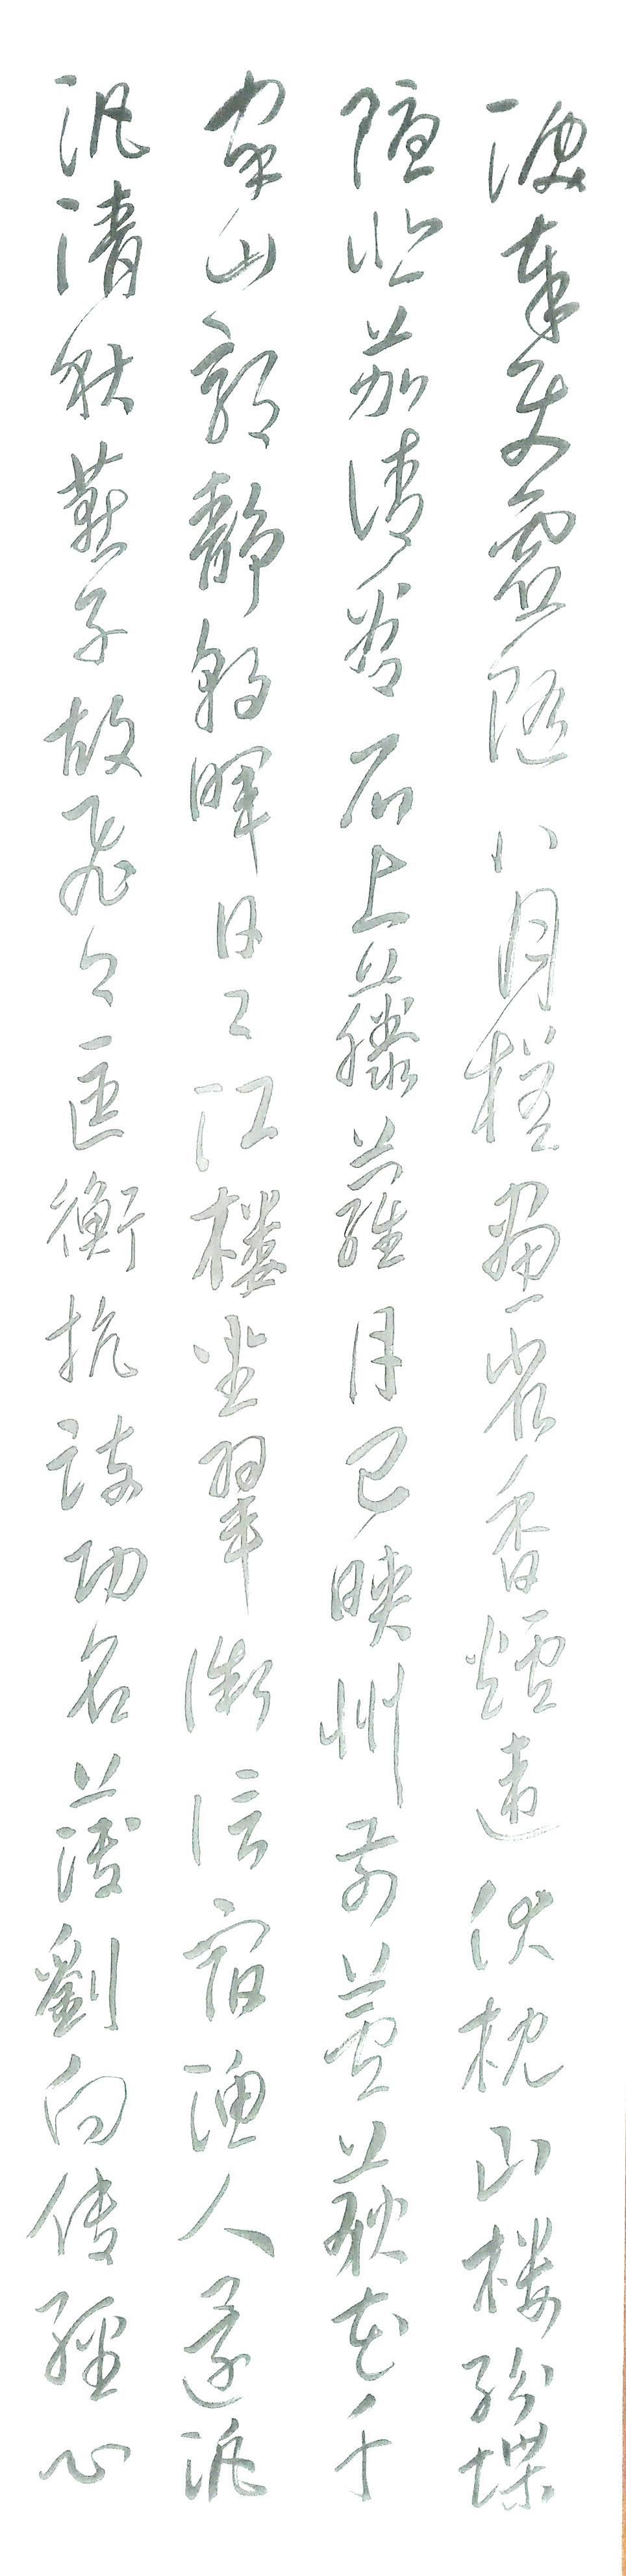 淚奉使虛隨八月槎畫省香爐違伏枕山樓粉堞
隱悲笳請看石上藤蘿月已映洲前蘆荻花千
家山郭靜朝暉日〻江樓坐翠微信宿漁人還汎
汎清秋燕子故飛〻匡衡抗疏功名薄劉向傳經心